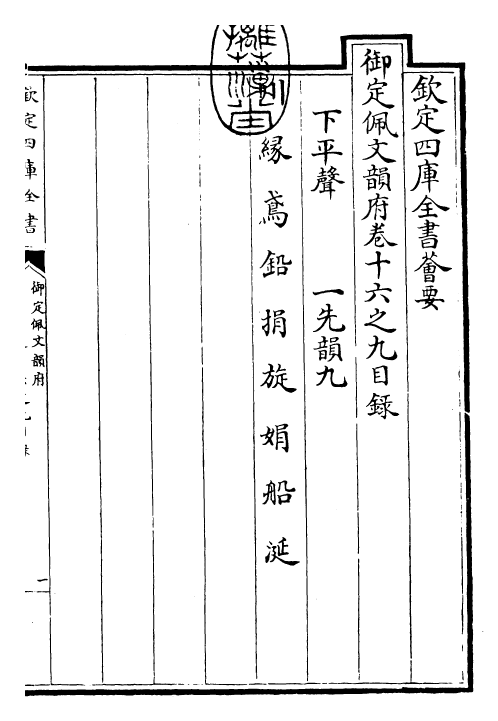 欽定四庫全書薈要
御定佩文韻府卷十六之九目録
下平聲 一先韻九
緣 鳶 鉛 捐 旋 娟 船 涎
欽定四庫全書
御定佩文韻府
一